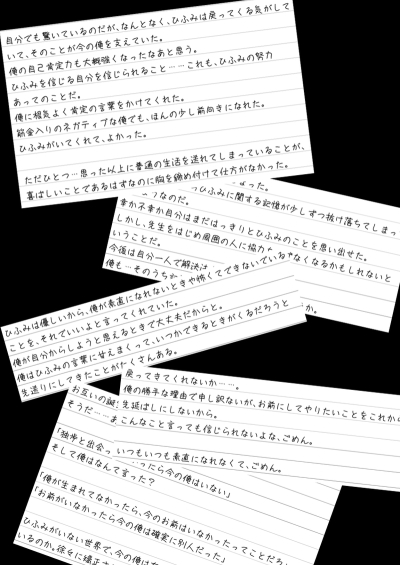 自分でも驚いているのだが、なんとなく、ひふみは戻ってくる気がして
いて、そのことが今の俺を支えていた。
俺の自己肯定力も大概強くなったなあと思う。
ひふみを信じる自分を信じられること……これも、ひふみの努力
あってのことだ。
俺に根気よく肯定の言葉をかけてくれた。
筋金入りのネガティブな俺でも、ほんの少し前向きになれた。
ひふみがいてくれて、よかった。
ただひとつ…思った以上に普通の生活を送れてしまっていることが、
喜ばしいことであるはずなのに胸を締め付けて仕方がなかった。
ひふみに関する記憶が少しずつ抜け落ちてしまっ
なのだ。
幸か不幸か自分はまだはっきりとひふみのことを思い出せた。
しかし、先生をはじめ周囲の人に協力
なくなるかもしれないと
いうことだ。
今後は自分一人で解決
俺も…そのうち
か。
ひふみは優しいから、俺が素直になれないときや怖くてできないでいる
ことを、それでいいよと言ってくれていた。
俺が自分からしようと思えるときで大丈夫だからと。
俺はひふみの言葉に甘えまくって、いつかできるときがくるだろうと
先送りにしてきたことがたくさんある。
戻ってきてくれないか……。
俺の勝手な理由で申し訳ないが、お前にしてやりたいことをこれから
先延ばしにしないから。
こんなこと言っても信じられないよな、ごめん。
いつもいつも素直になれなくて、ごめん。
お互いの誕生
そうだ……ま
「独歩と出会っ
ったら今の俺はいない」
そして俺はなんて言った？
「俺が生まれてなかったら、今のお前はいなかったってことだろ
「お前がいなかったら今の俺は確実に別人だった」
ひふみがいない世界で、今の俺は
いるのか。徐々に矯正さ